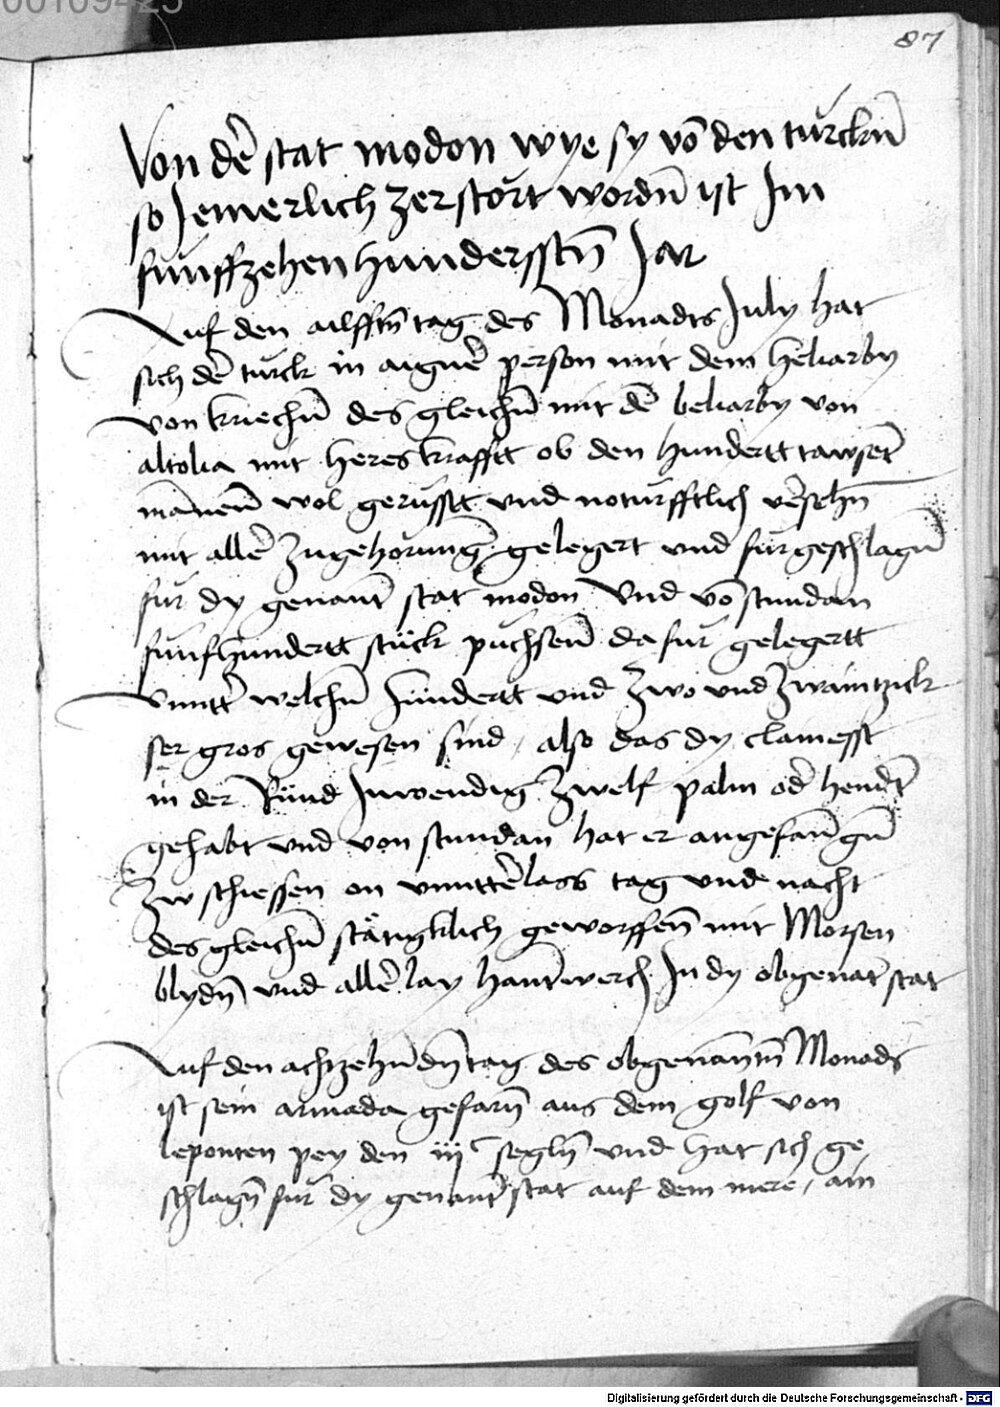 00109425
87
Von der̄ stat modon wye sy vō den türckn̄
so Jemerlich zerstört wordn̄ ist Im
funffzehen hundersstn̄ Jar
Auf den ailfftn̄ tag des Monadts July hat
sich der̄ türck in aigner̄ person mit dem heliarby
von kriechn̄ des gleichn̄ mit dē beliarby von
altolia mit heres krafft ob den hundertt tawsēt
mānen̄ wol gerüsstt vnd notürfftlich ver̄sehn̄
mit aller̄ zugehorung gelegert vnd fur geschlagn̄
für dy genant̄ stat modon Vnd vō stundan
fünfhundertt stück püchsen̄ da für gelegertt
vnntter̄ welchn̄ hündertt vnd zwo vnd zwaintzick
ser gros gewesen sind, also das dy clainesst
in der Ründ Inwendig zwelf palm oder̄ hendt̄
gehabt vnd von stundan hat er angefanḡn̄
zw schiessen on vnntter̄lass tag vnd nacht
des gleichn̄ stätigklich geworffen̄ mit Morsen
blydn̄ vnd aller̄lay hantwerch In dy obgenāt stat
Auf den achzehn̄dn̄ tag des obgenan̄tn̄ Monads
ist sein armada gefarn̄ aus dem golf von
leponten pey den iijc segln̄ vnd hat sich ge
schlagn̄ für dy genant̄ stat auf dem mere, ain
Digitalisierung gefördert durch die Deutsche Forschungsgemeinschaft - DFG